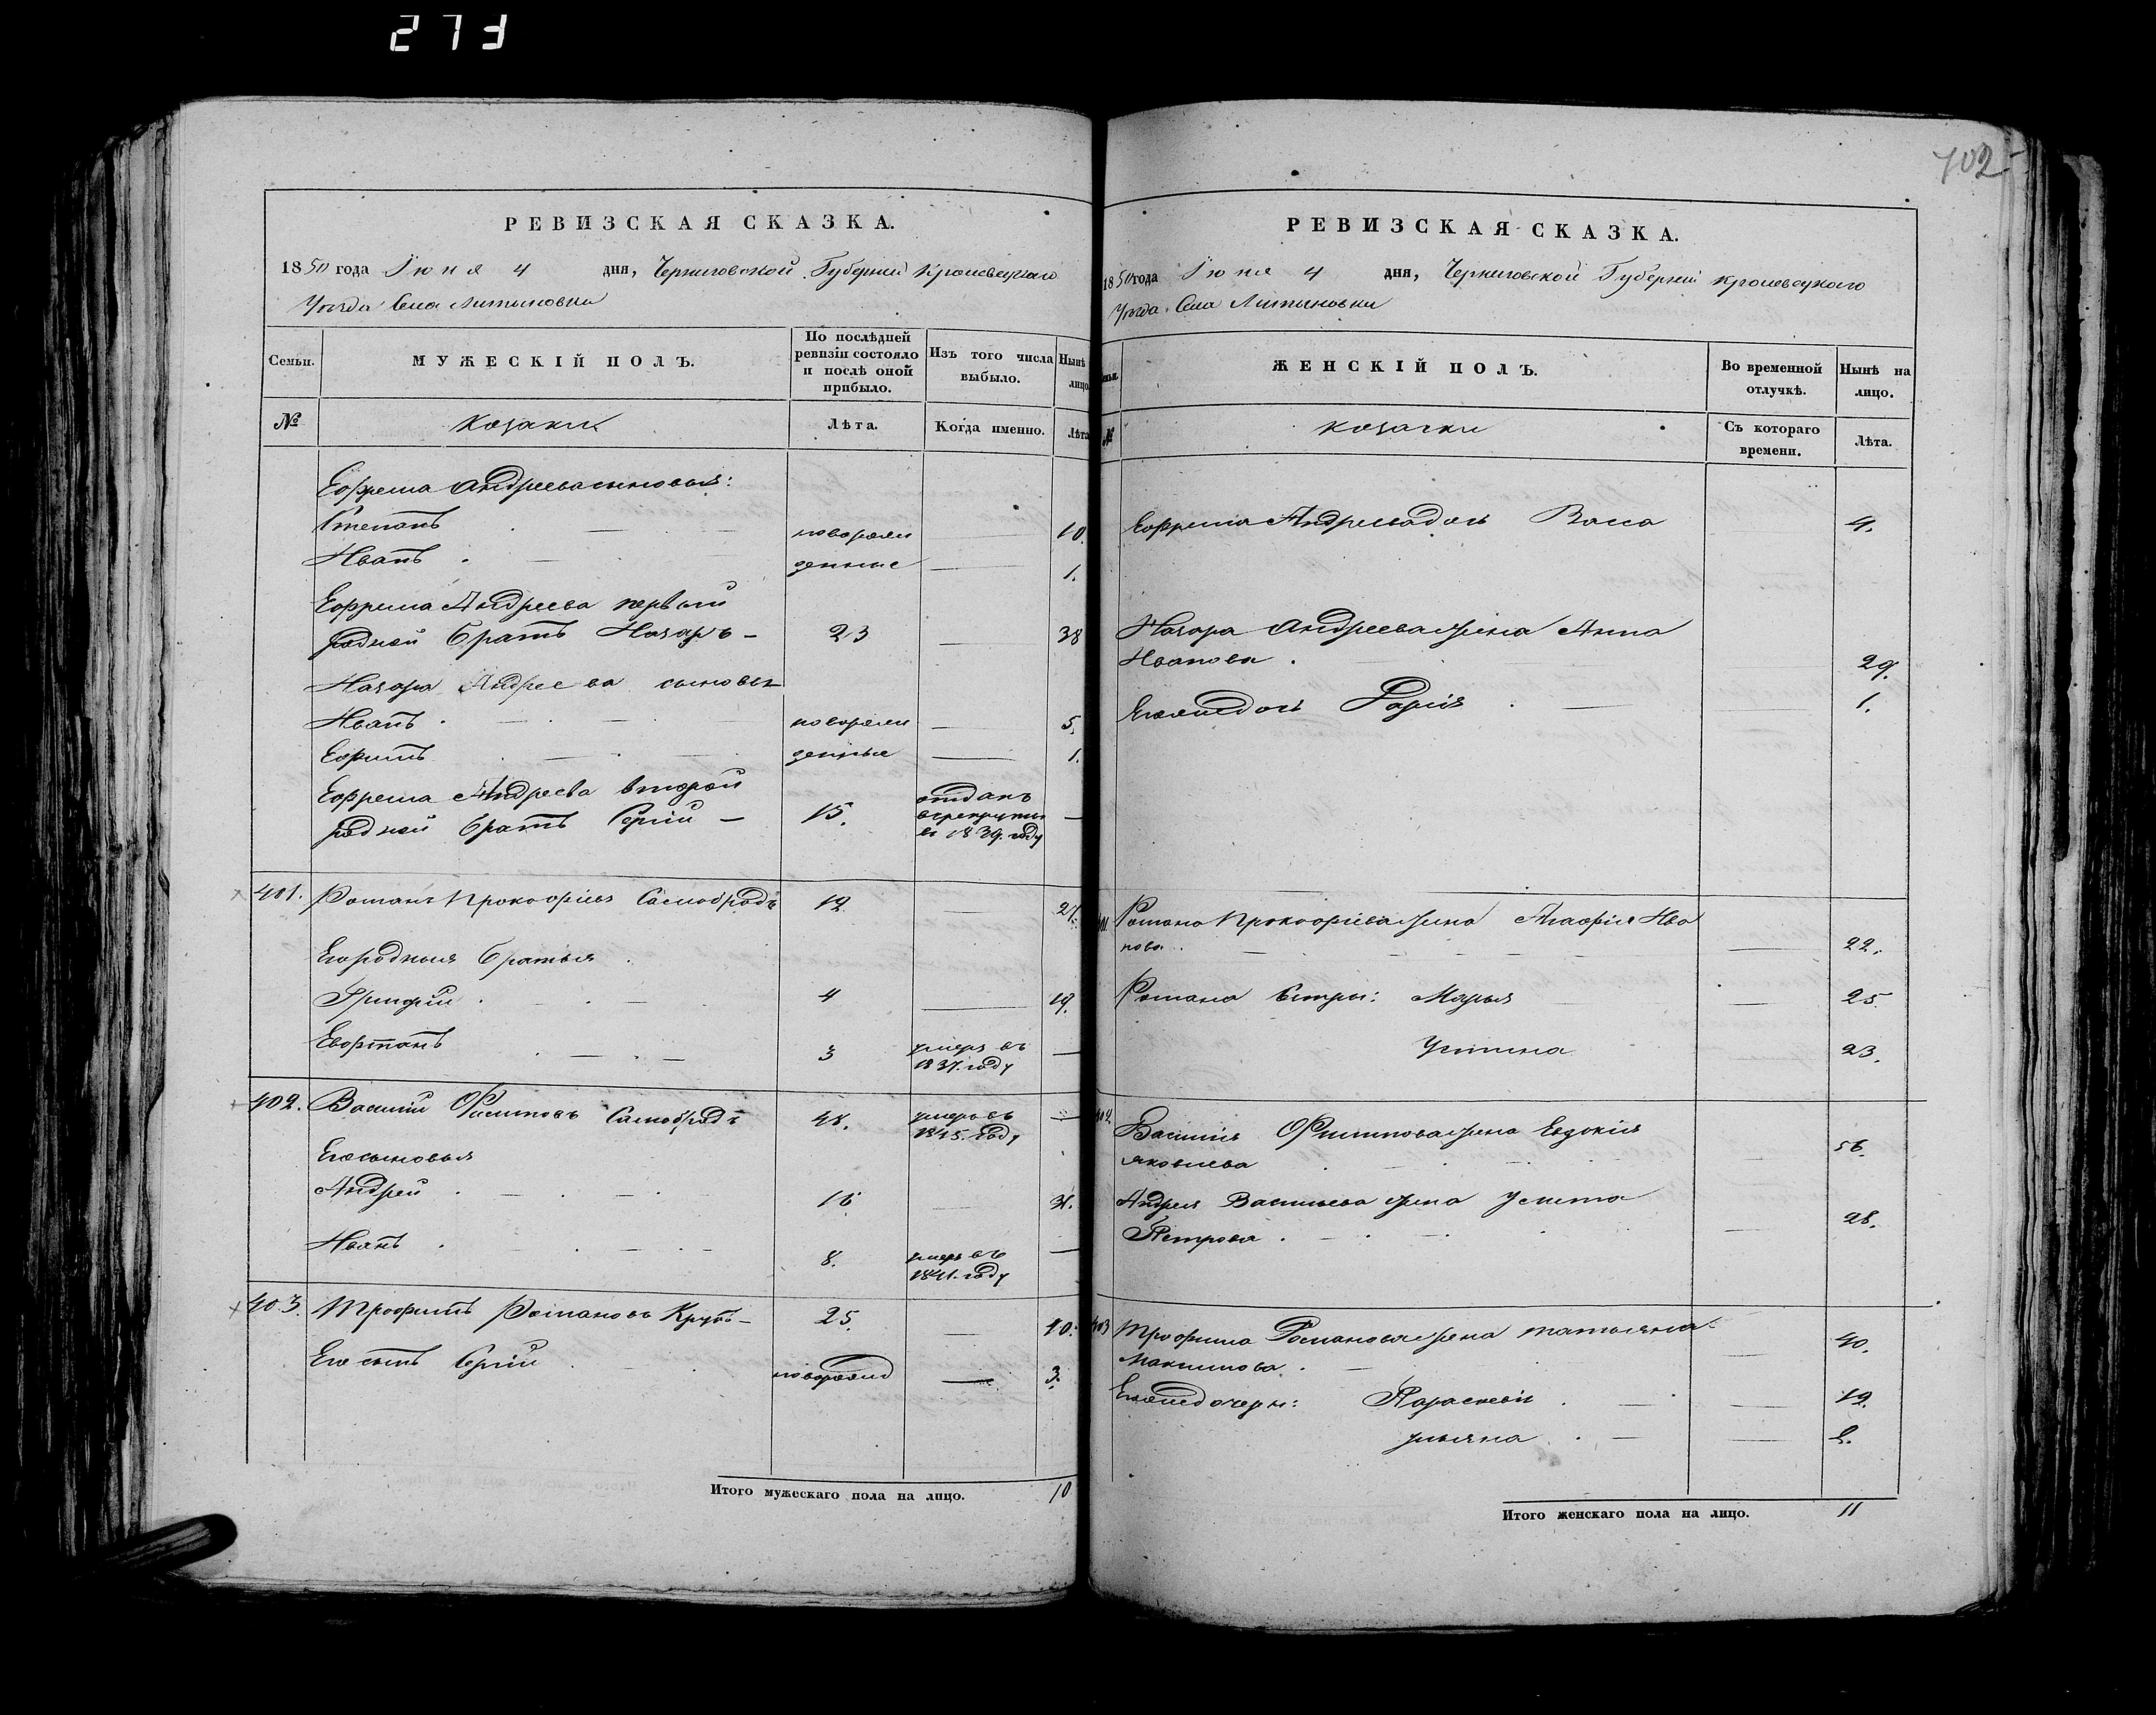 273
702
РЕВИЗСКАЯ СКАЗКА.
1850 года Іюня 4 дня, Черниговской Губерніи Кролевецкаго
Уѣзда Села Литвиновки
Семьи.
МУЖЕСКІЙ ПОЛЪ.
По послѣдней ревизіи состояло и послѣ оной прибыло.
Изъ того числа выбыло.
Нынѣ лицо
№
Козаки
Лѣта.
Когда именно.
Лѣта
Ефрема Андреева сыновья:
Степанъ новорож 10.
Иванъ денные 1.
Ефрема Андреева первый
родной братъ Назаръ 23 38
Назара Андреева сыновья
Иванъ новорож 5.
Ефимъ денные 1.
Ефрема Андреева второй
родной братъ Сергій 15. отданъ в рекруты в 1839. году
401. Романъ Прокофіевъ Самобродъ 12 27.
Его родныя братья
Григорій 4 19.
Евстафій 3 умеръ въ 1837. году
402. Василій Филиповъ Самобродъ 48. умеръ въ 1845. году
Его сыновья
Андрей 16 31.
Иванъ 8. умеръ въ 1841. году
403. Трофимъ Романовъ 25. 40.
Его сынъ Сергій новорожд 3.
Итого мужескаго пола на лицо. 10
РЕВИЗСКАЯ СКАЗКА.
1850 года Іюня 4 дня, Черниговской Губерніи Кролевецкаго
Уѣзда Села Литвиновки
ЖЕНСКІЙ ПОЛЪ.
Во временной отлучкѣ.
Нынѣ на лицо.
№
Козачки
Съ котораго времени.
Лѣта.
Ефрема Андреева дочь Васса 4.
Назара Андреева жена Анна
Иванова 29.
Его же дочь Дарія 1.
Романа Прокофіева жена Агафія Ива
нова 22.
Романа сестры: Марья 25
Устина 23.
402 Василія Филипова жена Евдокія
Яковлева 56.
Андрея Васильева жена Улита
Петрова 28.
403 Трофима Романова жена Татьяна
Максимова 40.
Его же дочери: Параскевія 12.
Ульяна
Итого женскаго пола на лицо. 11